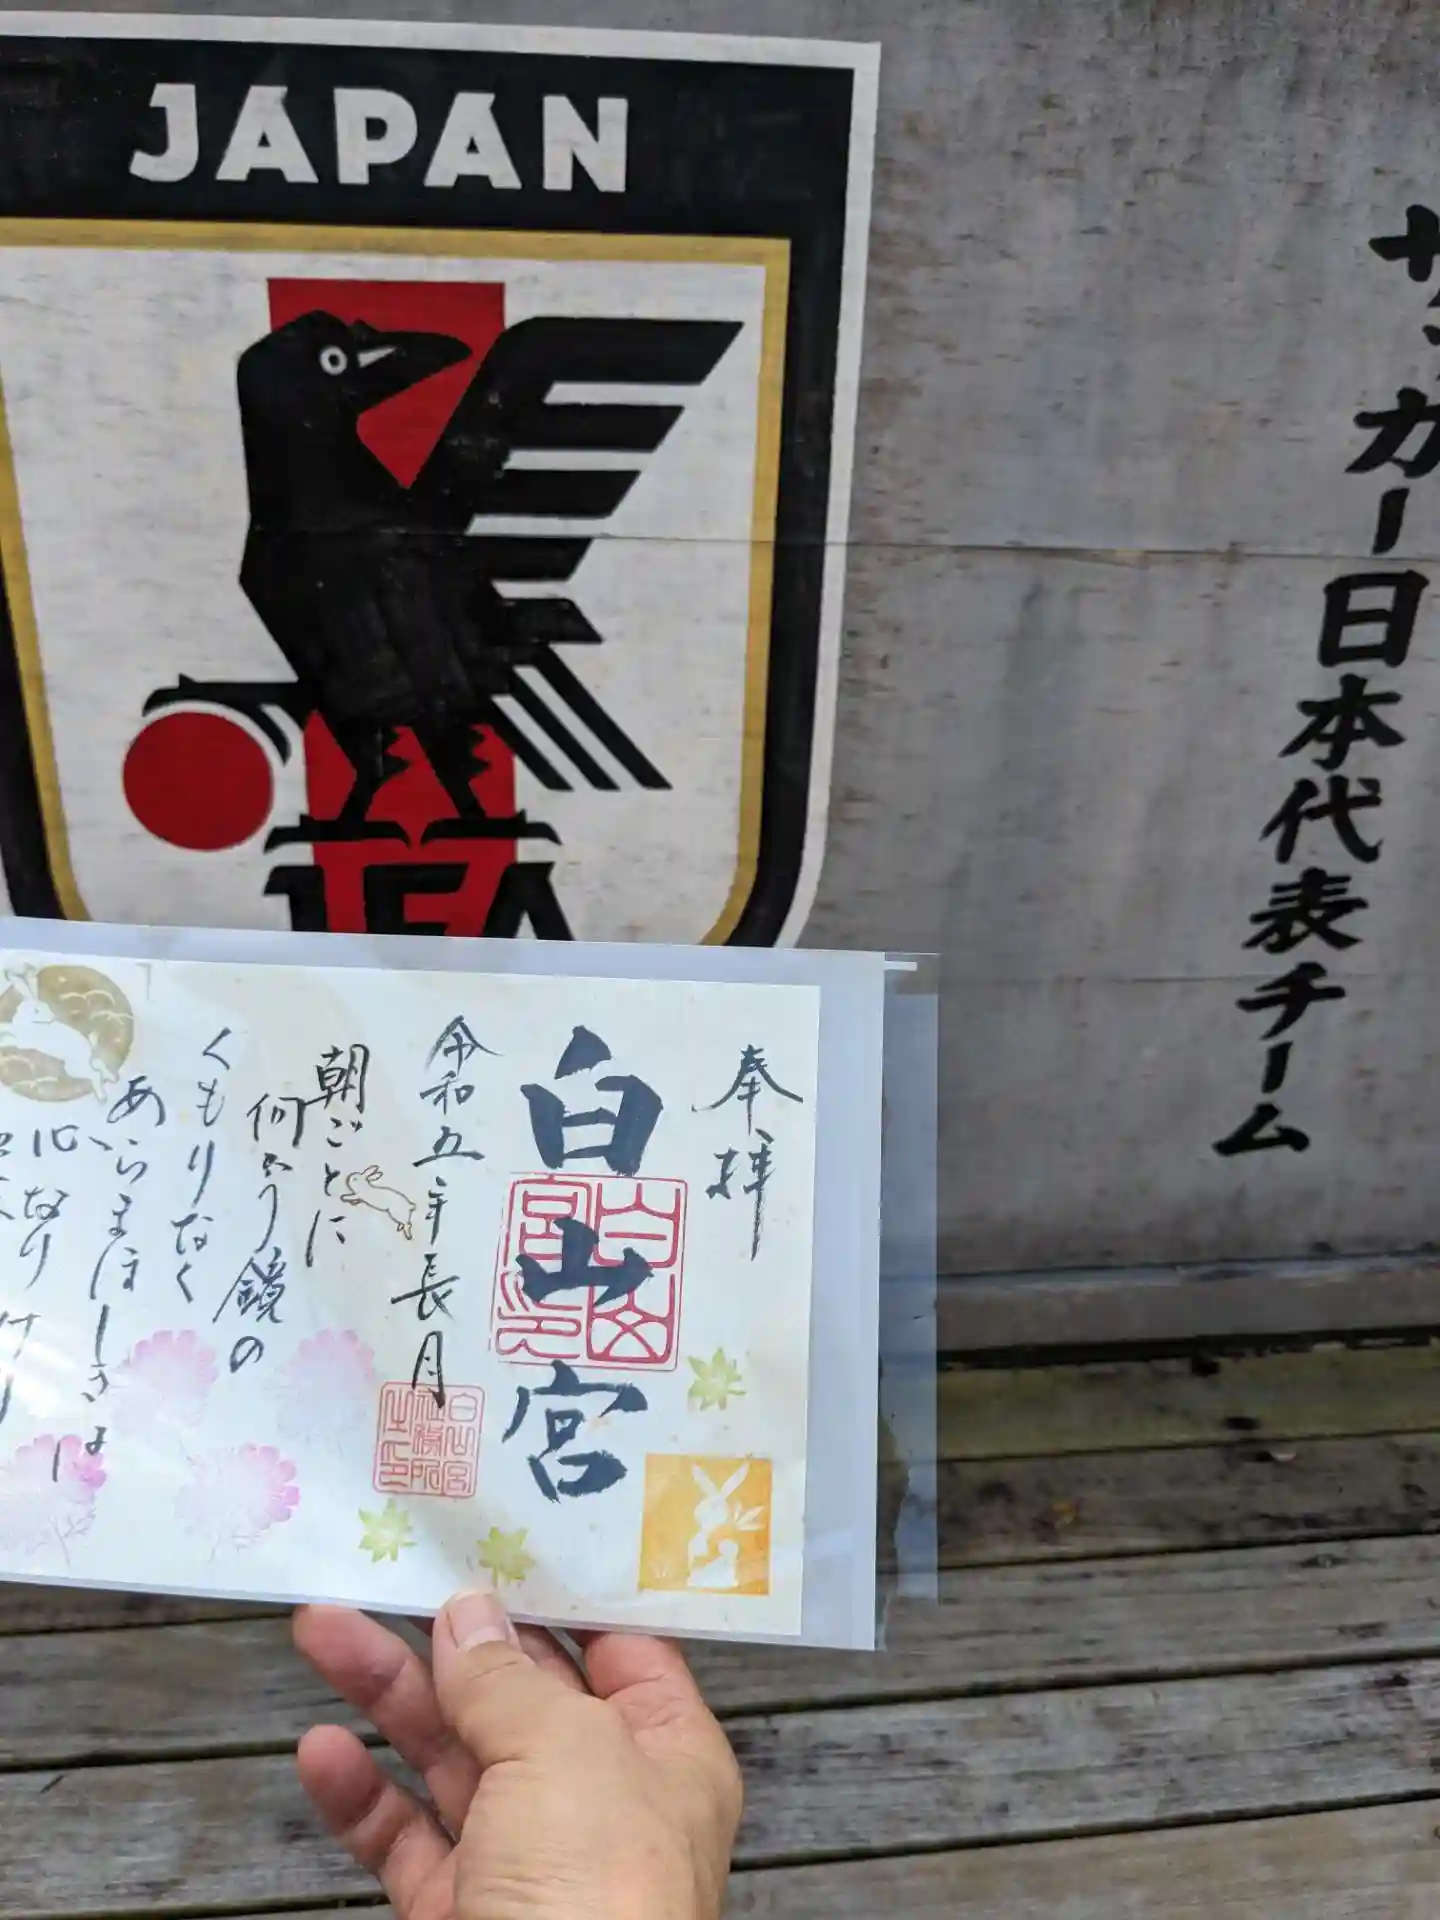 JAPAN
JFA
サッカー日本代表チーム
奉拝
白山宮
令和五年長月
朝ごとに
何かう鏡の
くもりなく
あらまほしきは
心なりけり
白山宮印
白山宮社務所之印